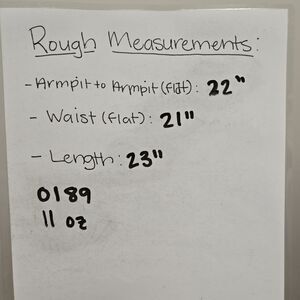 Rough Measurements:
- Armpit to Armpit (flat): 22"
- Waist (flat): 21"
- Length: 23"
0189
11 oz